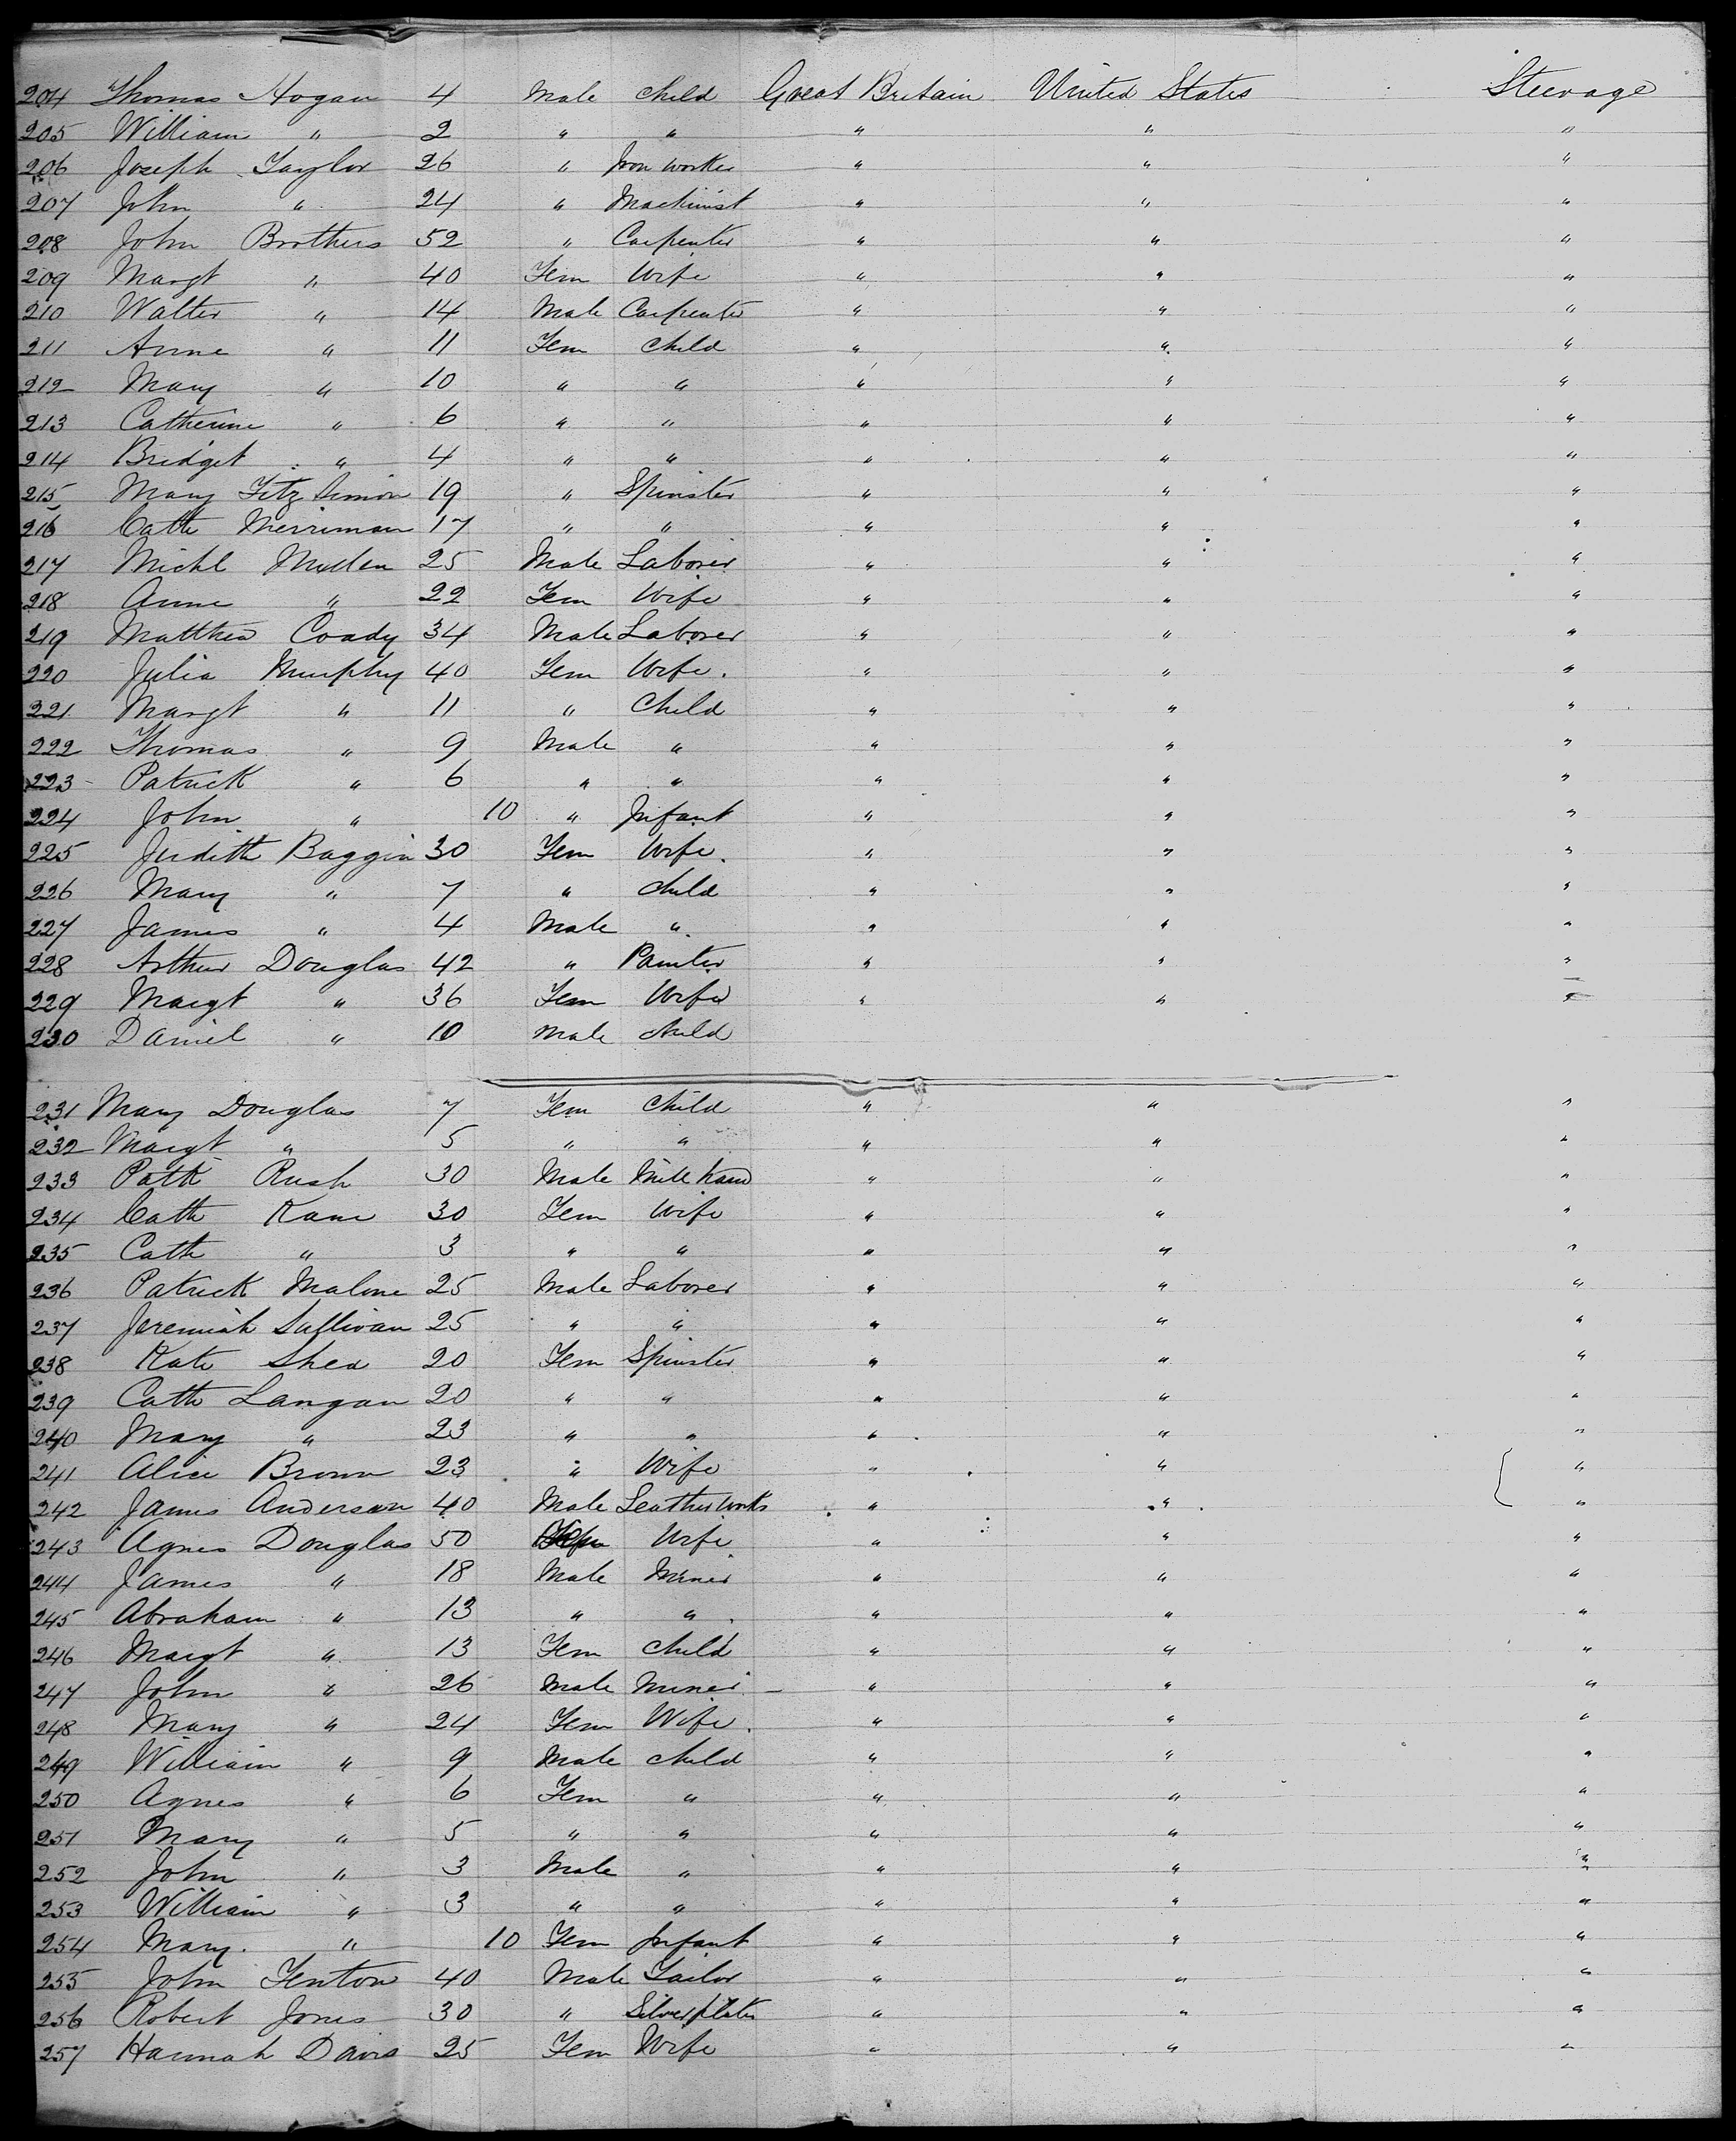 204 Thomas Hogan 4 Male Child Great Britain United States Steerage
205 William " 2 " " " " "
206 Joseph Taylor 26 " Iron worker " " "
207 John " 24 " Machinist " " "
208 John Brothers 52 " Carpenter " " "
209 Margt " 40 Fem Wife " " "
210 Walter " 14 Male Carpenter " " "
211 Anne " 11 Fem Child " " "
212 Mary " 10 " " " " "
213 Catherine " 6 " " " " "
214 Bridget " 4 " " " " "
215 Mary Fitz Simon 19 " Spinster " " "
216 Cath Merriman 17 " " " " "
217 Michl Mullen 25 Male Laborer " " "
218 Anne " 22 Fem Wife " " "
219 Matthew Coady 34 Male Laborer " " "
220 Julia Murphy 40 Fem Wife. " " "
221 Margt " 11 " Child " " "
222 Thomas " 9 Male " " " "
223 Patrick " 6 " " " " "
224 John " 10 " Infant " " "
225 Judith Baggin 30 Fem Wife. " " "
226 Mary " 7 " Child " " "
227 James " 4 Male " " " "
228 Arthur Douglas 42 " Painter " " "
229 Margt " 36 Fem Wife " " "
230 Daniel " 10 Male Child
231 Mary Douglas 7 Fem Child " " "
232 Margt " 5 " " " " "
233 Patk Rush 30 Male Mill hand " " "
234 Cath Kane 30 Fem Wife " " "
235 Cath " 3 " " " " "
236 Patrick Malone 25 Male Laborer " " "
237 Jeremiah Sullivan 25 " " " " "
238 Kate Shea 20 Fem Spinster " " "
239 Cath Langan 20 " " " " "
240 Mary " 23 " " " " "
241 Alice Brown 23 " Wife " " "
242 James Anderson 40 Male Leather works " " "
243 Agnes Douglas 50 Fem Wife " " "
244 James " 18 Male Miner " " "
245 Abraham " 13 " " " " "
246 Margt " 13 Fem Child " " "
247 John " 26 Male Miner " " "
248 Mary " 24 Fem Wife. " " "
249 William " 9 Male Child " " "
250 Agnes " 6 Fem " " " "
251 Mary " 5 " " " " "
252 John " 3 Male " " " "
253 William " 3 " " " " "
254 Mary. " 10 Fem Infant " " "
255 John Fenton 40 Male Tailor " " "
256 Robert Jones 30 " Silver plater " " "
257 Hannah Davis 25 Fem Wife " " "